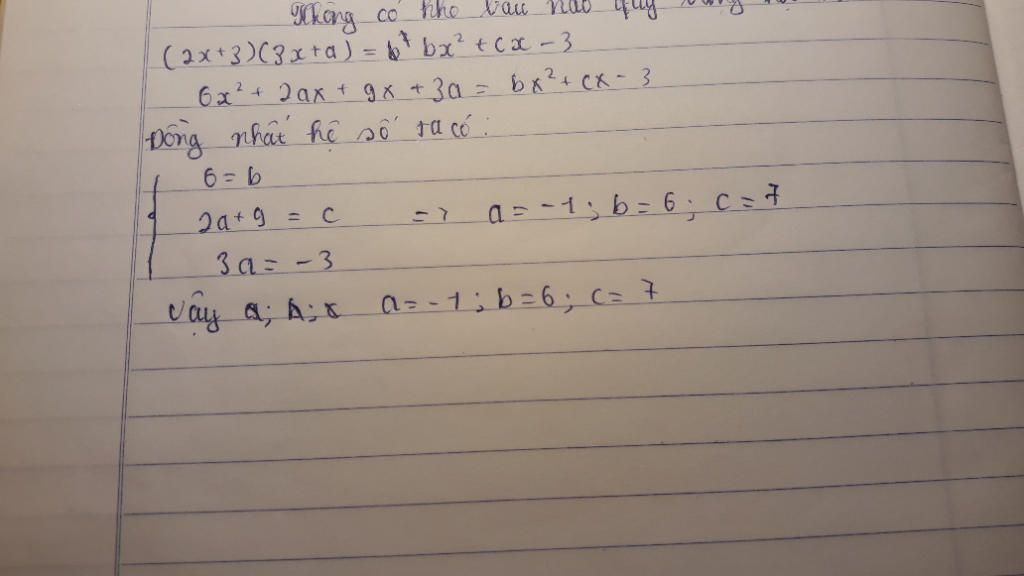 Không có kho báu nào quý bằng
(2x+3)(3x+a) = bx² + cx - 3
6x² + 2ax + 9x + 3a = bx² + cx - 3
Đồng nhất hệ số ta có:
6 = b
2a+9 = c => a = -1; b = 6; c = 7
3a = -3
Vậy a = -1; b = 6; c = 7